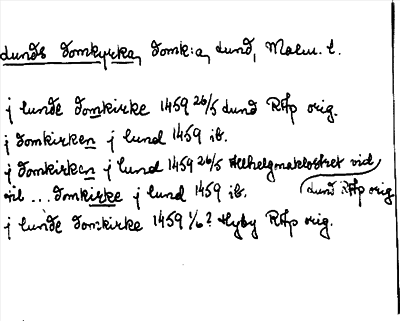 Lunds domkyrka, domk:a, Lund, Malm. l.
j lunde domkirke 1459 26/5 Lund RAp orig.
j domkirken j lund 1459 ib.
j domkirken j lund 1459 26/5 Allhelgonaklostret vid Lund RAp orig.
til ... domkirke j lund 1459 ib.
j lunde domkirke 1459 1/6? Hyby RAp orig.